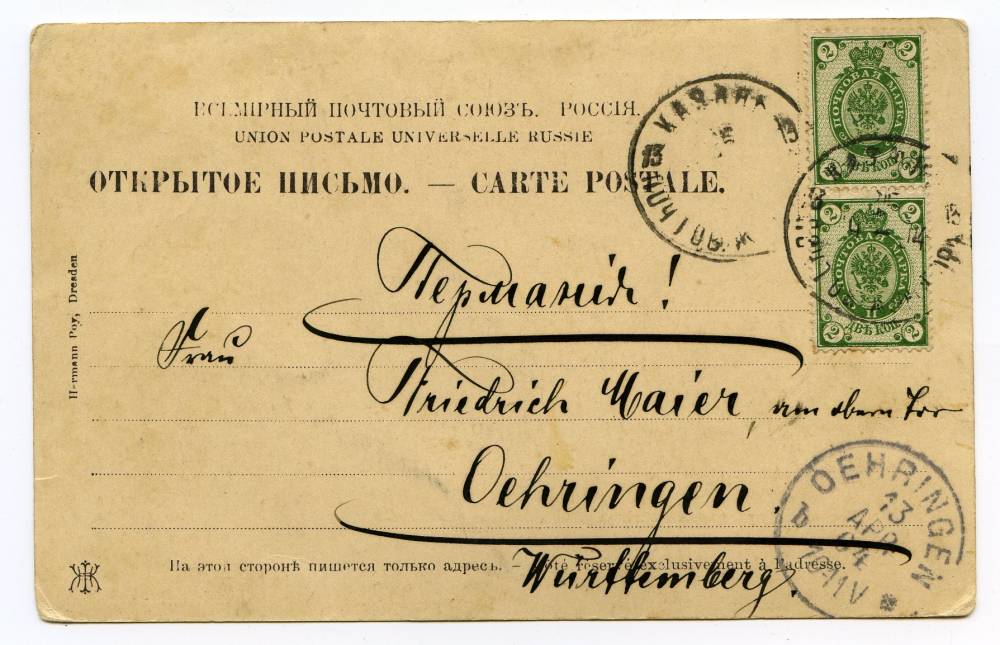 ВСЕМІРНЫЙ ПОЧТОВЫЙ СОЮЗЪ. РОССІЯ.
UNION POSTALE UNIVERSELLE RUSSIE
ОТКРЫТОЕ ПИСЬМО. — CARTE POSTALE.
2 2
ПОЧТОВАЯ МАРКА
ДВѢ КОП.
2 2
ПОЧТОВАЯ МАРКА
ДВѢ КОП.
2 2
КАЗАНЬ
13 13
Германія!
Frau
Friedrich Maier, am obern Tor
Oehringen.
Württemberg.
Hermann Poy, Dresden
На этой сторонѣ пишется только адресъ. – Côté réservé exclusivement à l'adresse.
OEHRINGEN
13
APR
04
b